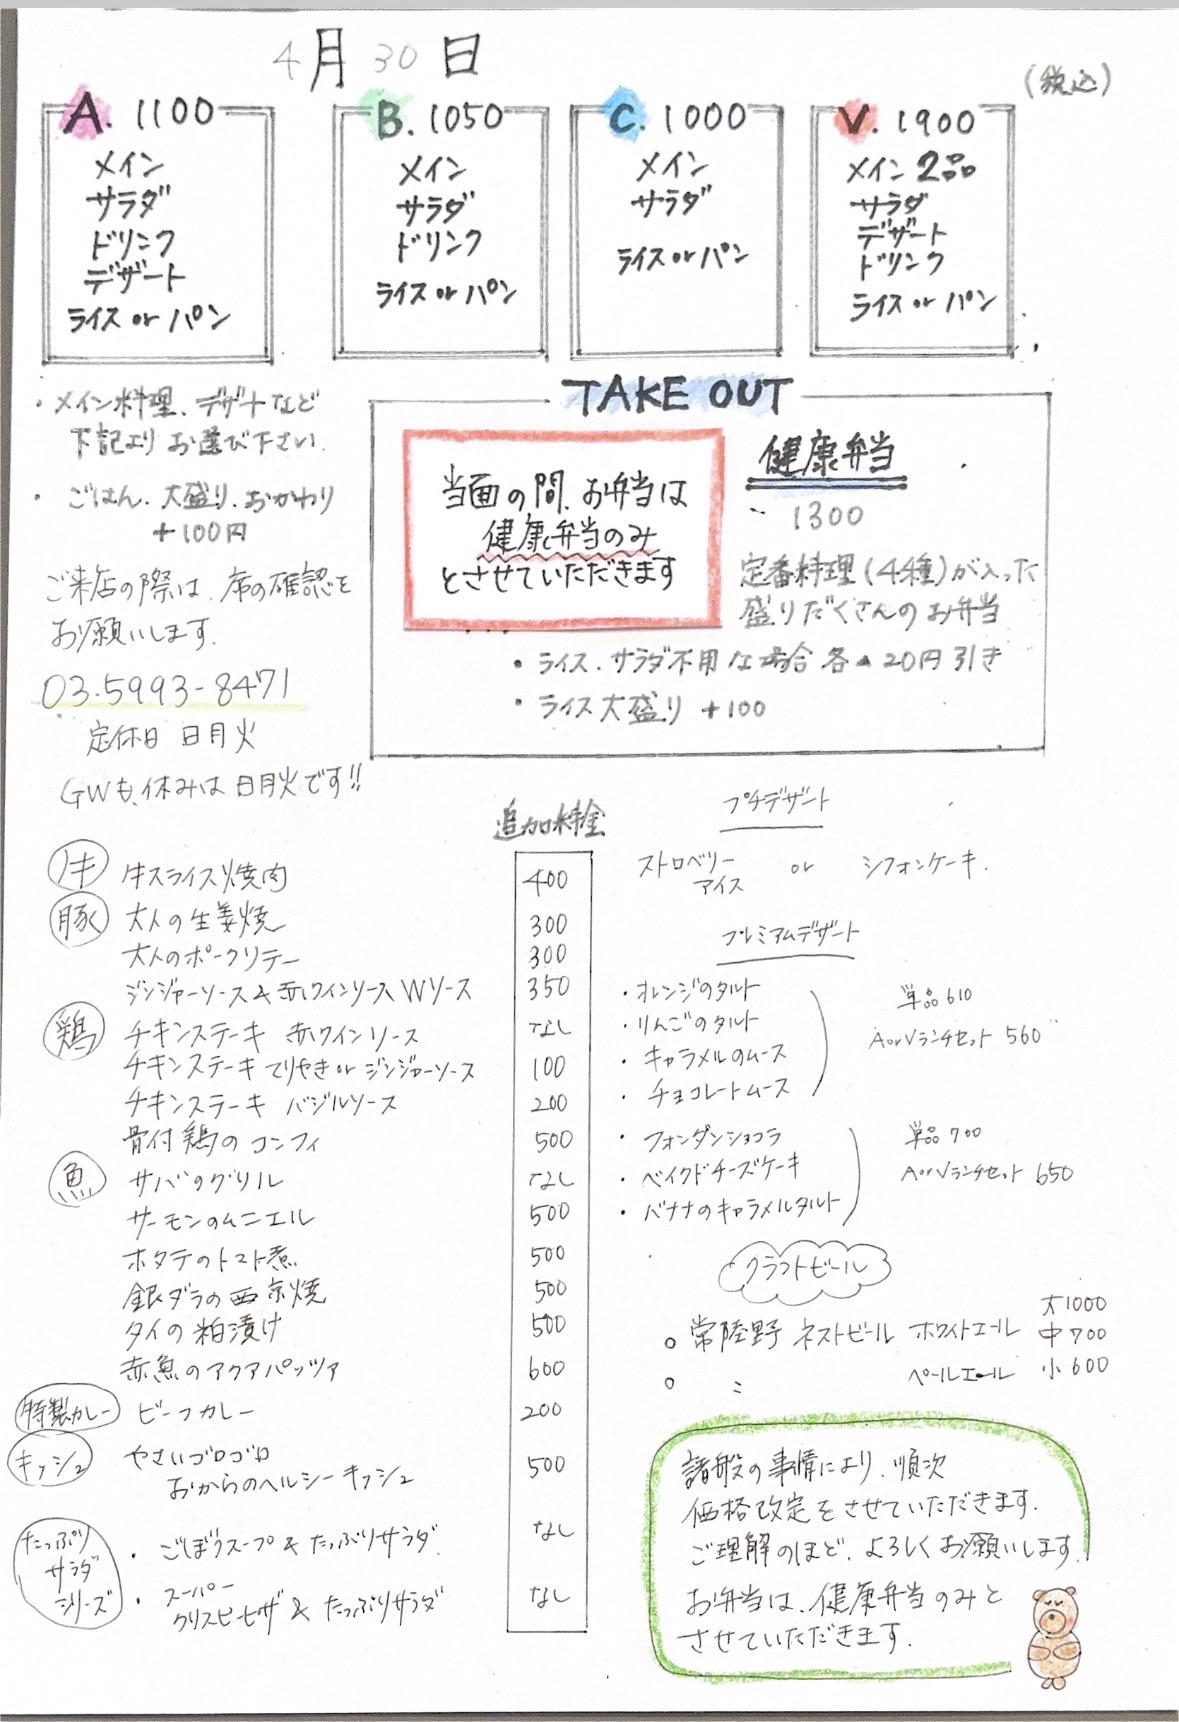 4月30日
(税込)
A. 1100
メイン
サラダ
ドリンク
デザート
ライス or パン
B. 1050
メイン
サラダ
ドリンク
ライス or パン
C. 1000
メイン
サラダ
ライス or パン
V. 1900
メイン 2品
サラダ
デザート
ドリンク
ライス or パン
・メイン料理、デザートなど
下記より お選び下さい.
・ごはん、大盛り、おかわり
+100円
ご来店の際は、席の確認を
お願いします.
03-5993-8471
定休日 日月火
GWも、休みは 日月火です!!
TAKE OUT
当面の間、お弁当は
健康弁当のみ
とさせていただきます
健康弁当
1300
定番料理(4種)が入った
盛りだくさんのお弁当
・ライス、サラダ不用な場合 各▲20円引き
・ライス大盛り +100
追加料金
牛 牛スライス焼肉 400
豚 大人の生姜焼 300
大人のポークソテー 300
ジンジャーソース&赤ワインソース Wソース 350
鶏 チキンステーキ 赤ワインソース なし
チキンステーキ てりやき or ジンジャーソース 100
チキンステーキ バジルソース 200
骨付鶏のコンフィ 500
魚 サバのグリル なし
サーモンのムニエル 500
ホタテのトマト煮 500
銀ダラの西京焼 500
タイの粕漬け 500
赤魚のアクアパッツァ 600
特製カレー ビーフカレー 200
キッシュ やさいゴロゴロ
おからのヘルシーキッシュ 500
たっぷり
サラダ
シリーズ
・ごぼうスープ & たっぷりサラダ. なし
・スーパー
クリスピーピザ & たっぷりサラダ なし
プチデザート
ストロベリー
アイス or シフォンケーキ.
プレミアムデザート
・オレンジのタルト
・りんごのタルト
・キャラメルのムース
・チョコレートムース
単品 610
AorVランチセット 560
・フォンダンショコラ
・ベイクドチーズケーキ
・バナナのキャラメルタルト
単品 700
AorVランチセット 650
クラフトビール
○ 常陸野 ネストビール ホワイトエール
○ 〃 ペールエール
大1000
中700
小600
諸般の事情により、順次
価格改定をさせていただきます.
ご理解のほど、よろしくお願いします.
お弁当は、健康弁当のみと
させていただきます.